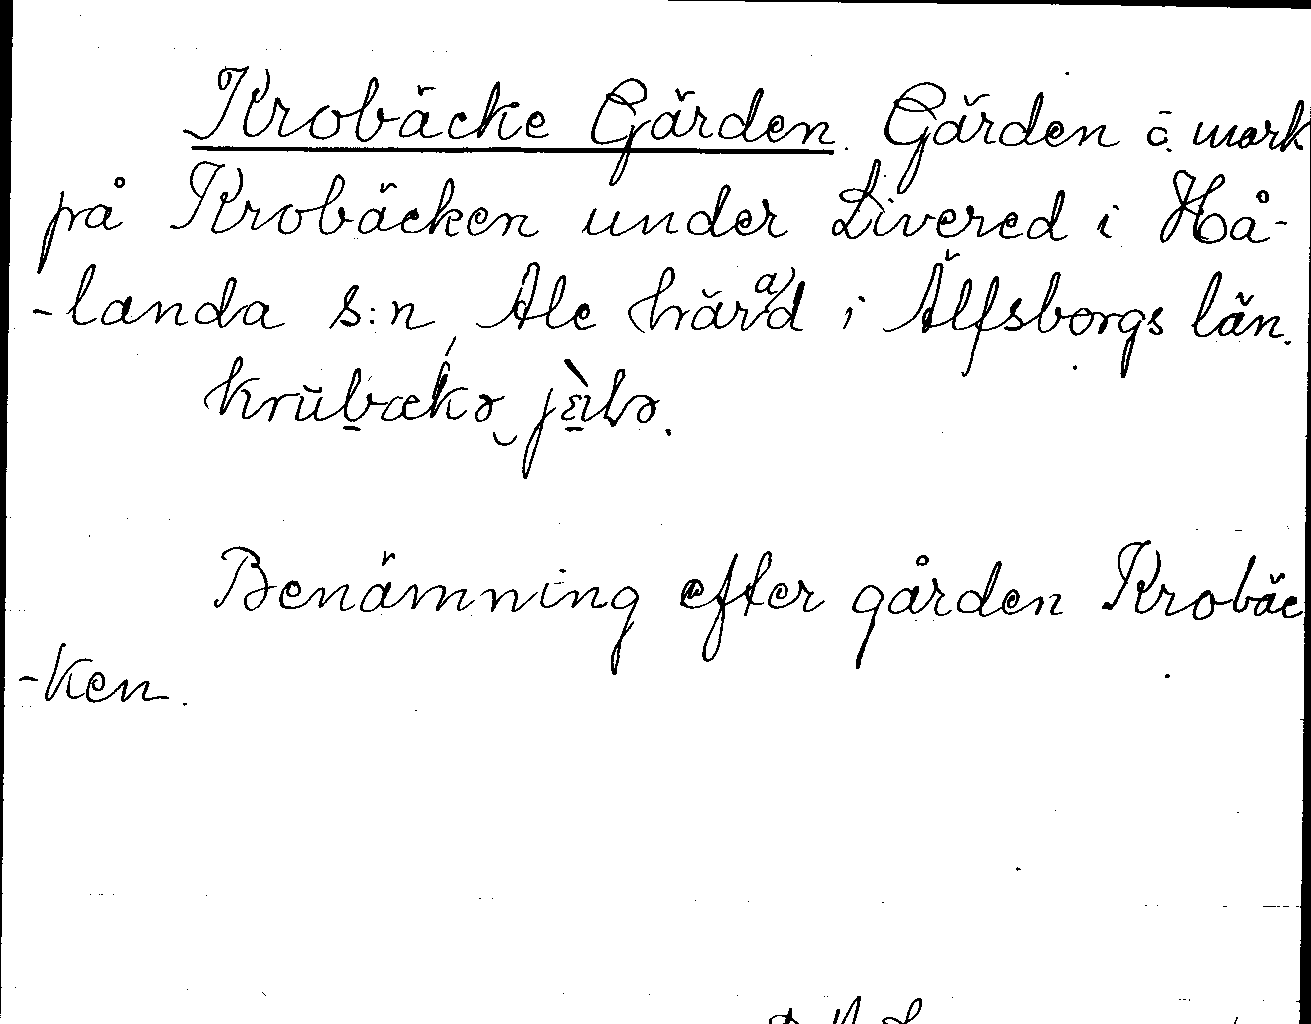 Krobäcke Gärden. Gärden å. mark
på Krobäcken under Livered i Hå-
-landa s:n, Ale härad i Älfsborgs län.
Benämning efter gården Krobäc
-ken.